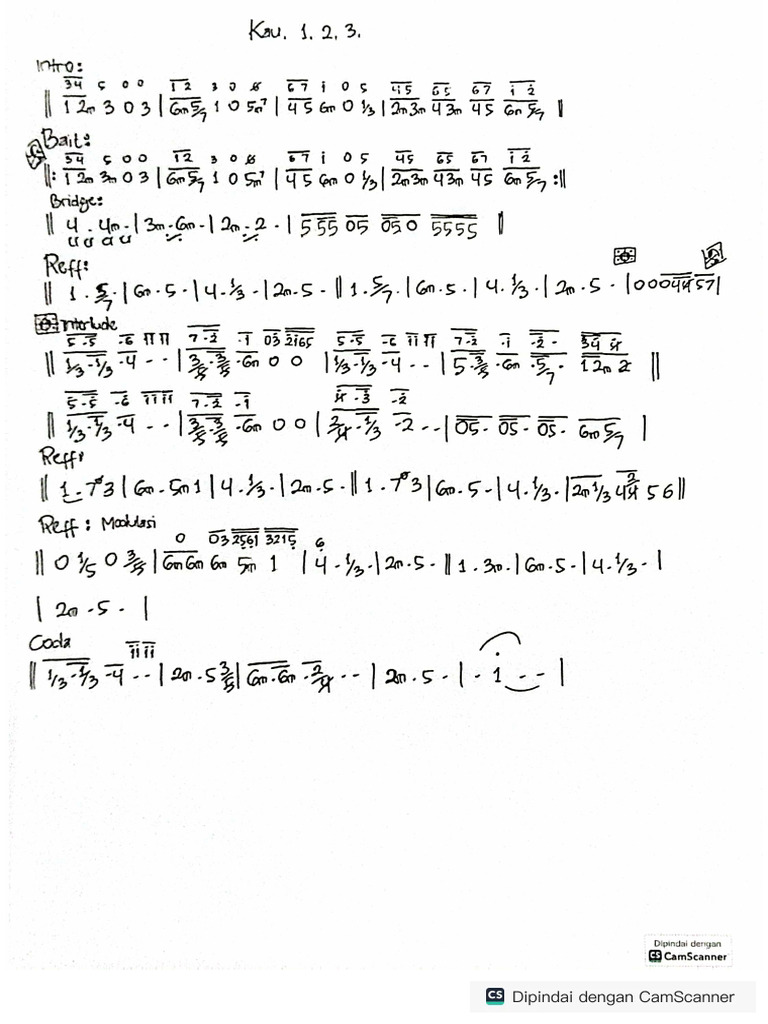 Kau. 1. 2. 3.
Intro:
34 5 0 0 12 3 0 67 i 0 5 45 65 67 i 2
|| 1 2m 3 0 3 | 6m 5/7 1 0 5m7 | 4 5 6m 0 1/3 | 2m 3m 4 3m 4 5 6m 5/7 ||
Bait:
34 5 0 0 12 3 0 67 i 0 5 45 65 67 i 2
||: 1 2m 3m 0 3 | 6m 5/7 1 0 5m7 | 4 5 6m 0 1/3 | 2m 3m 4 3m 4 5 6m 5/7 :||
Bridge:
|| 4 . 4m - | 3m - 6m - | 2m - 2 - | 555 05 050 5555 ||
Reff:
|| 1 . 5/7 . | 6m . 5 - | 4 - 1/3 - | 2m . 5 - || 1 . 5/7 . | 6m . 5 . | 4 . 1/3 . | 2m . 5 - | 0 0 0 4 4 5 7 |
Interlude
5-5 -6 ii ii 7-2 -i 03 2165 5-5 -6 ii ii 7-2 -i -2- 34
|| 1/3-1/3 -4 - - | 3/5-3/5 -6m 0 0 | 1/3-1/3 -4 - - | 5-3/5 -6m -5/7- 1 2m 2 ||
5-5 -6 ii ii 7-2 -i -3 -2
|| 1/3-1/3 -4 - - | 3/5-3/5 -6m 0 0 | -1/3 -2 - - | 05- 05- 05- 6m 5/7 |
Reff:
|| 1 . 7° 3 | 6m . 5m 1 | 4 . 1/3 - | 2m . 5 - || 1 . 7° 3 | 6m . 5 - | 4 . 1/3 . | 2m 1/3 4 5 6 ||
Reff : Modulasi
0 03 2561 3215 6
|| 0 1/5 0 3/5 | 6m 6m 6m 5m 1 | 4 - 1/3 - | 2m . 5 - || 1 . 3m . | 6m . 5 - | 4 - 1/3 - |
| 2m . 5 - |
Coda
ii ii
|| 1/3-1/3 -4 - - | 2m . 5 3/5 | 6m-6m - - | 2m . 5 - | - 1 - - |
Dipindai dengan
CS CamScanner
CS Dipindai dengan CamScanner